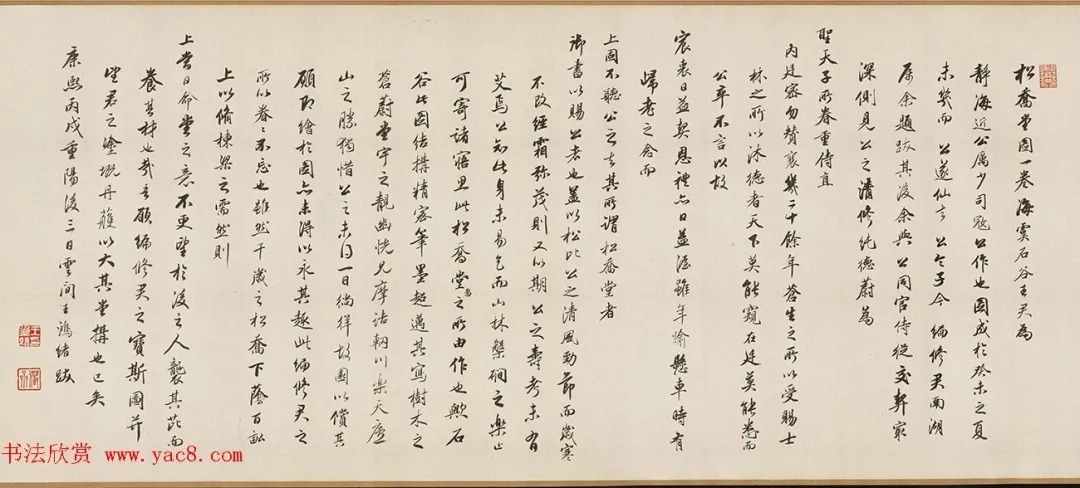 松喬堂圖一卷海虞石谷王君為
靜海近公属少司寇公作也圖成於癸未之夏
未幾而公遂仙去公令子今編修君南湖
属余題跋其後余與公同官侍從交契最
深側見公之清修純德蔚為
聖天子所眷重侍直
內廷密勿贊襄幾二十餘年蒼生之所以受賜士
林之所以沐德者天下莫能窺在廷莫能悉而
公卒不言以故
宸衷日益契恩禮亦日益渥雖年踰懸車時有
歸老之念而
上固不聽公之去其所謂松喬堂者
御書以賜公者也蓋以松比公之清風勁節而歲寒
不改經霜弥茂則又以期公之壽考未有
艾焉公知此身未易乞而山林槃磵之樂止
可寄諸寤思此松喬堂之所由作也歟石
谷此圖結構精密筆墨超邁其寫樹木之
蒼蔚堂宇之靚幽恍見摩詰輞川樂天廬
山之勝獨惜公之未得一日徜徉故園以償其
願即繪於圖亦未得以永其趣此編修君之
所以眷眷不忘也雖然千歲之松喬下蔭百畝
上以備棟梁之需然則
上當日命堂之意不更望於後之人襲其芘而
養其材也哉吾願編修君之寶斯圖并
望君之塗塈丹雘以大其堂構也已矣
康熙丙戌重陽後三日雲間王鴻緒跋
书法欣赏 www.yac8.com